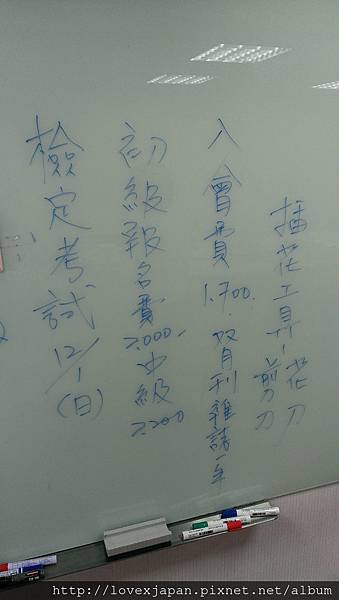 插花工具－花刀
剪刀
入會費 1.700. 双月刊雜誌一年
初級報名費 2.000. 中級 2.200
檢定考試 12/1 (日)
http://lovexjapan.pixnet.net/album